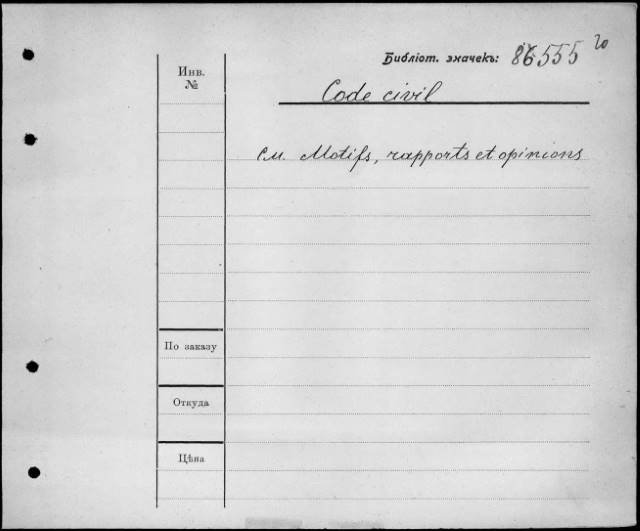 Библіот. значекъ: 86555 20
Инв.
№
Code civil
См. Motifs, rapports et opinions
По заказу
Откуда
Цѣна